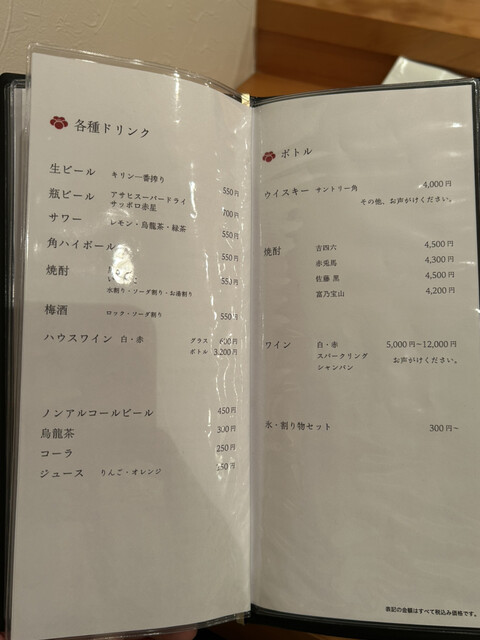 各種ドリンク
生ビール キリン一番搾り 550円
瓶ビール アサヒスーパードライ
サッポロ赤星 700円
サワー レモン・烏龍茶・緑茶 550円
角ハイボール 550円
焼酎 550円
水割り・ソーダ割り・お湯割り
梅酒 ロック・ソーダ割り 550円
ハウスワイン 白・赤 グラス 600円
ボトル 3,200円
ノンアルコールビール 450円
烏龍茶 300円
コーラ 250円
ジュース りんご・オレンジ
ボトル
ウイスキー サントリー角 4,000円
その他、お声がけください。
焼酎 吉四六 4,500円
赤兎馬 4,300円
佐藤 黒 4,500円
富乃宝山 4,200円
ワイン 白・赤 5,000円~12,000円
スパークリング お声がけください。
シャンパン
氷・割り物セット 300円~
表記の金額はすべて税込み価格です。